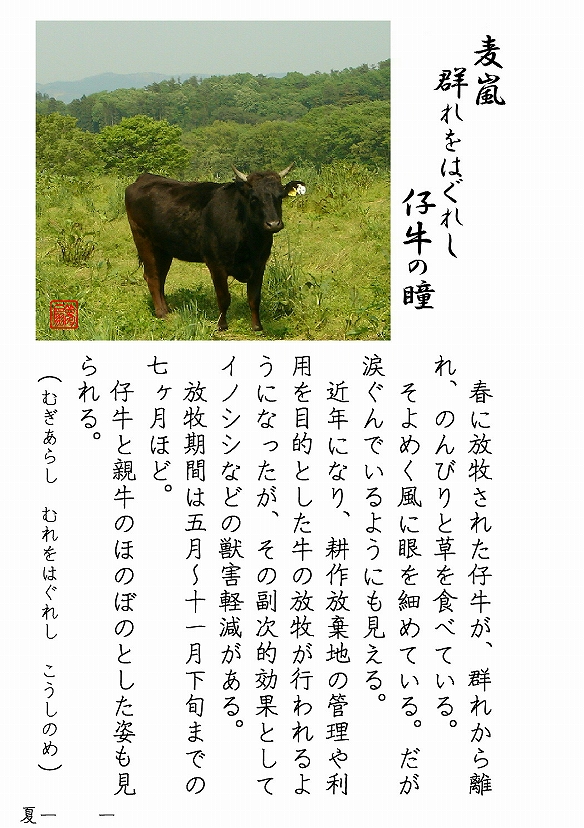 麦嵐
群れをはぐれし
仔牛の瞳
　春に放牧された仔牛が、群れから離
れ、のんびりと草を食べている。
　そよめく風に眼を細めている。だが
涙ぐんでいるようにも見える。
　近年になり、耕作放棄地の管理や利
用を目的とした牛の放牧が行われるよ
うになったが、その副次的効果として
イノシシなどの獣害軽減がある。
　放牧期間は五月～十一月下旬までの
七ヶ月ほど。
　仔牛と親牛のほのぼのとした姿も見
られる。
（むぎあらし　むれをはぐれし　こうしのめ）
夏一　一